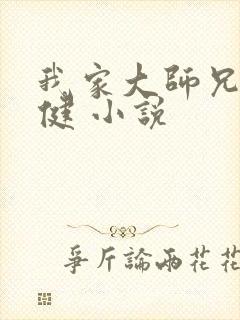 我家大師兄
健 小說
爭斤論兩花花